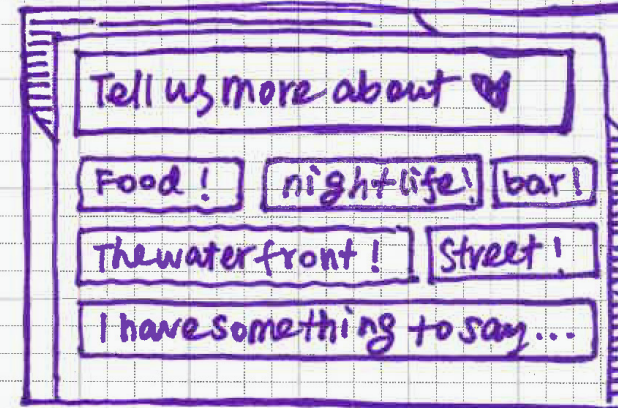 Tell us more about ♥
Food! nightlife! bar!
The waterfront! Street!
I have something to say...